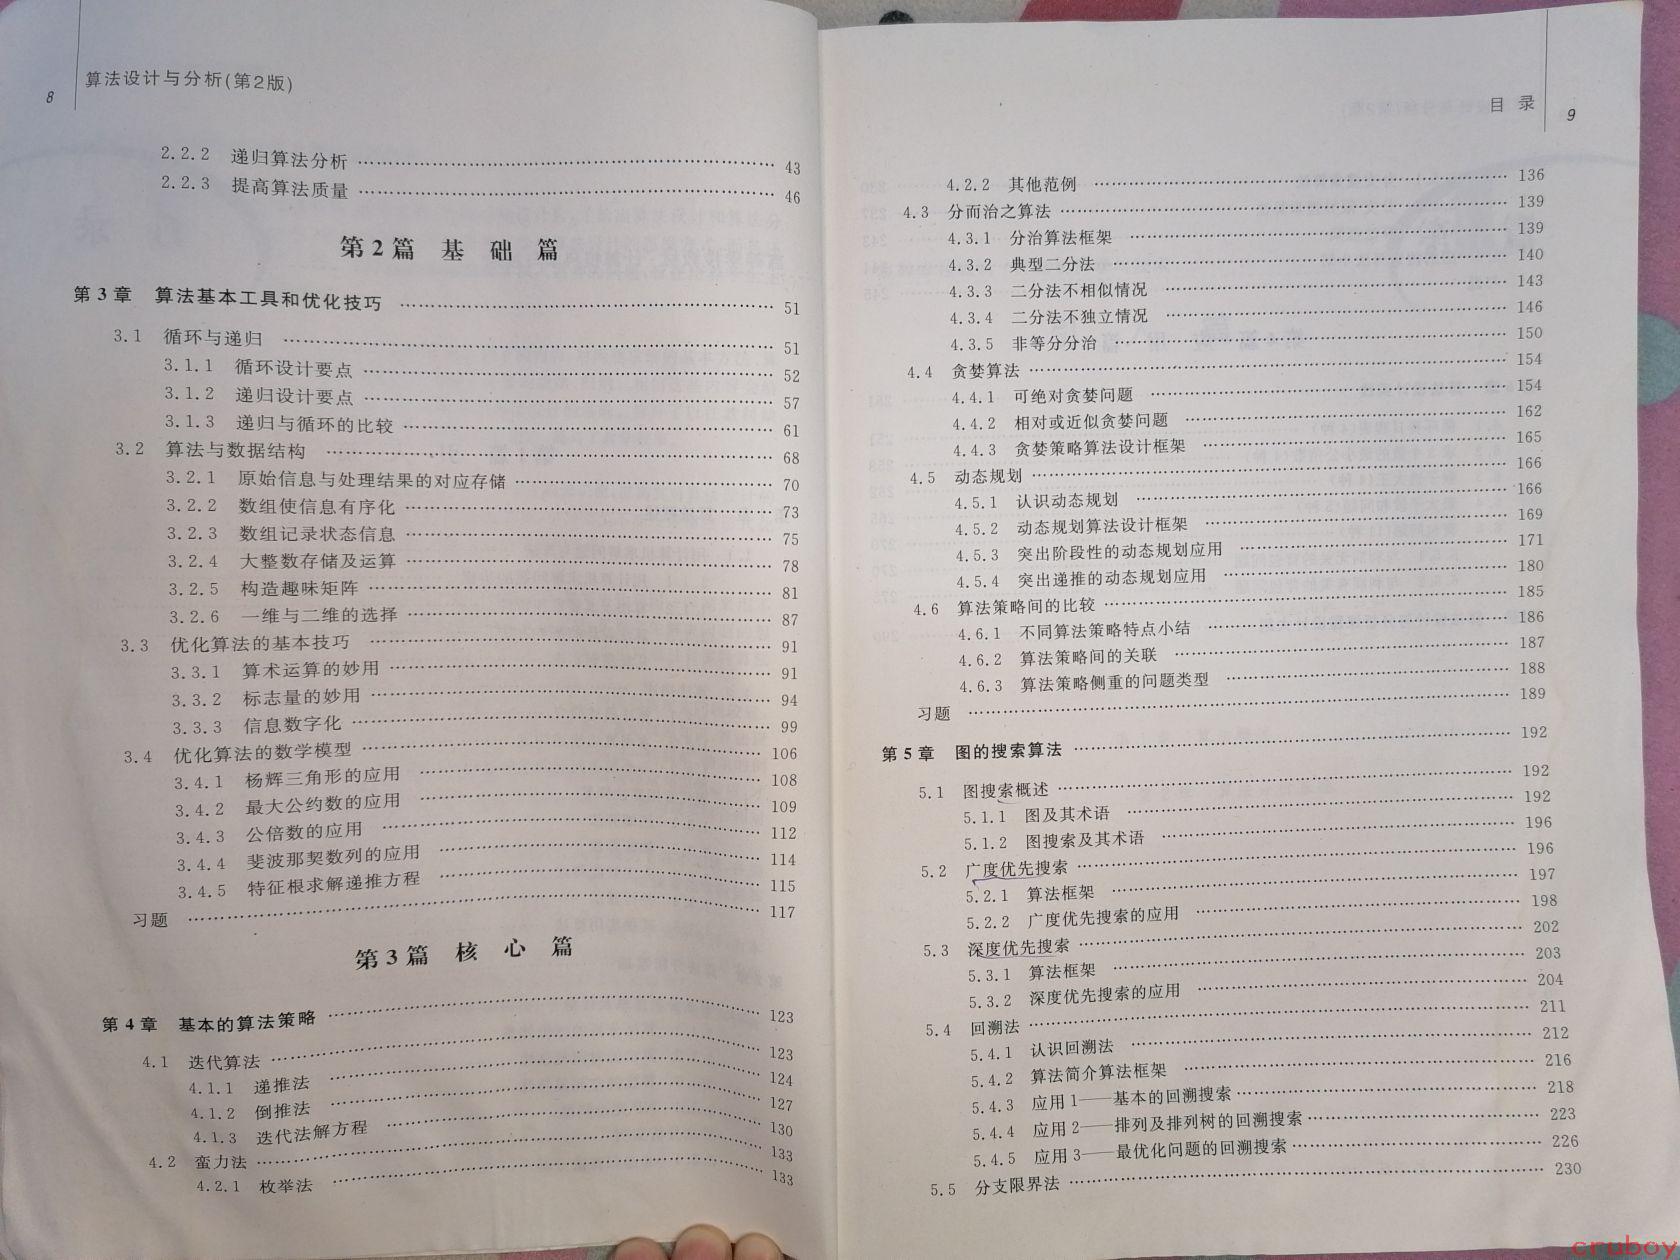 8 算法设计与分析(第2版)
2.2.2 递归算法分析 …… 43
2.2.3 提高算法质量 …… 46
第2篇 基 础 篇
第3章 算法基本工具和优化技巧 …… 51
3.1 循环与递归 …… 51
3.1.1 循环设计要点 …… 52
3.1.2 递归设计要点 …… 57
3.1.3 递归与循环的比较 …… 61
3.2 算法与数据结构 …… 68
3.2.1 原始信息与处理结果的对应存储 …… 70
3.2.2 数组使信息有序化 …… 73
3.2.3 数组记录状态信息 …… 75
3.2.4 大整数存储及运算 …… 78
3.2.5 构造趣味矩阵 …… 81
3.2.6 一维与二维的选择 …… 87
3.3 优化算法的基本技巧 …… 91
3.3.1 算术运算的妙用 …… 91
3.3.2 标志量的妙用 …… 94
3.3.3 信息数字化 …… 99
3.4 优化算法的数学模型 …… 106
3.4.1 杨辉三角形的应用 …… 108
3.4.2 最大公约数的应用 …… 109
3.4.3 公倍数的应用 …… 112
3.4.4 斐波那契数列的应用 …… 114
3.4.5 特征根求解递推方程 …… 115
习题 …… 117
第3篇 核 心 篇
第4章 基本的算法策略 …… 123
4.1 迭代算法 …… 123
4.1.1 递推法 …… 124
4.1.2 倒推法 …… 127
4.1.3 迭代法解方程 …… 130
4.2 蛮力法 …… 133
4.2.1 枚举法 …… 133
目 录 9
4.2.2 其他范例 …… 136
4.3 分而治之算法 …… 139
4.3.1 分治算法框架 …… 139
4.3.2 典型二分法 …… 140
4.3.3 二分法不相似情况 …… 143
4.3.4 二分法不独立情况 …… 146
4.3.5 非等分分治 …… 150
4.4 贪婪算法 …… 154
4.4.1 可绝对贪婪问题 …… 154
4.4.2 相对或近似贪婪问题 …… 162
4.4.3 贪婪策略算法设计框架 …… 165
4.5 动态规划 …… 166
4.5.1 认识动态规划 …… 166
4.5.2 动态规划算法设计框架 …… 169
4.5.3 突出阶段性的动态规划应用 …… 171
4.5.4 突出递推的动态规划应用 …… 180
4.6 算法策略间的比较 …… 185
4.6.1 不同算法策略特点小结 …… 186
4.6.2 算法策略间的关联 …… 187
4.6.3 算法策略侧重的问题类型 …… 188
习题 …… 189
第5章 图的搜索算法 …… 192
5.1 图搜索概述 …… 192
5.1.1 图及其术语 …… 192
5.1.2 图搜索及其术语 …… 196
5.2 广度优先搜索 …… 196
5.2.1 算法框架 …… 197
5.2.2 广度优先搜索的应用 …… 198
5.3 深度优先搜索 …… 202
5.3.1 算法框架 …… 203
5.3.2 深度优先搜索的应用 …… 204
5.4 回溯法 …… 211
5.4.1 认识回溯法 …… 212
5.4.2 算法简介算法框架 …… 216
5.4.3 应用1——基本的回溯搜索 …… 218
5.4.4 应用2——排列及排列树的回溯搜索 …… 223
5.4.5 应用3——最优化问题的回溯搜索 …… 226
5.5 分支限界法 …… 230
cruboy